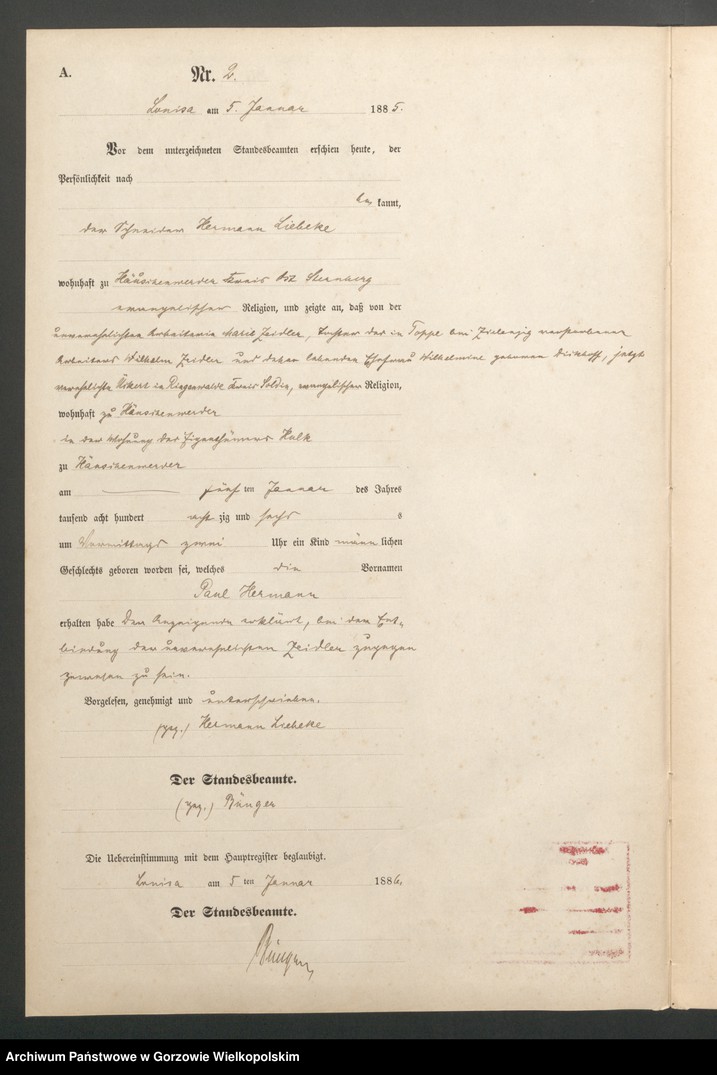 A.
Nr. 2.
Louisa am 5. Januar 1885.
Vor dem unterzeichneten Standesbeamten erschien heute, der
Persönlichkeit nach
be kannt,
der Schneider Hermann Liebeke
wohnhaft zu Hänschenwerder Kreis Ost Sternberg
evangelischer Religion, und zeigte an, daß von der
unverehelichten Arbeiterin Marie Zeidler, Tochter des in Toppe bei Zielenzig verstorbenen
Arbeiters Wilhelm Zeidler und dessen lebenden Ehefrau Wilhelmine geborenen jetzt
verehelichte in Kreis Soldin, evangelischer Religion,
wohnhaft zu Hänschenwerder
in der Wohnung des Eigenthümers
zu Hänschenwerder
am fünf ten Januar des Jahres
tausend acht hundert acht zig und sechs s
um Vormittags zwei Uhr ein Kind männ lichen
Geschlechts geboren worden sei, welches die Vornamen
Paul Hermann
erhalten habe Der Anzeigende erklärt, bei der Ent-
bindung der unverehelichten Zeidler zugegen
gewesen zu sein.
Vorgelesen, genehmigt und unterschrieben.
(gez.) Hermann Liebeke
Der Standesbeamte.
(gez.) Bünger
Die Uebereinstimmung mit dem Hauptregister beglaubigt.
Louisa am 5 ten Januar 1886.
Der Standesbeamte.
Bünger
Archiwum Państwowe w Gorzowie Wielkopolskim